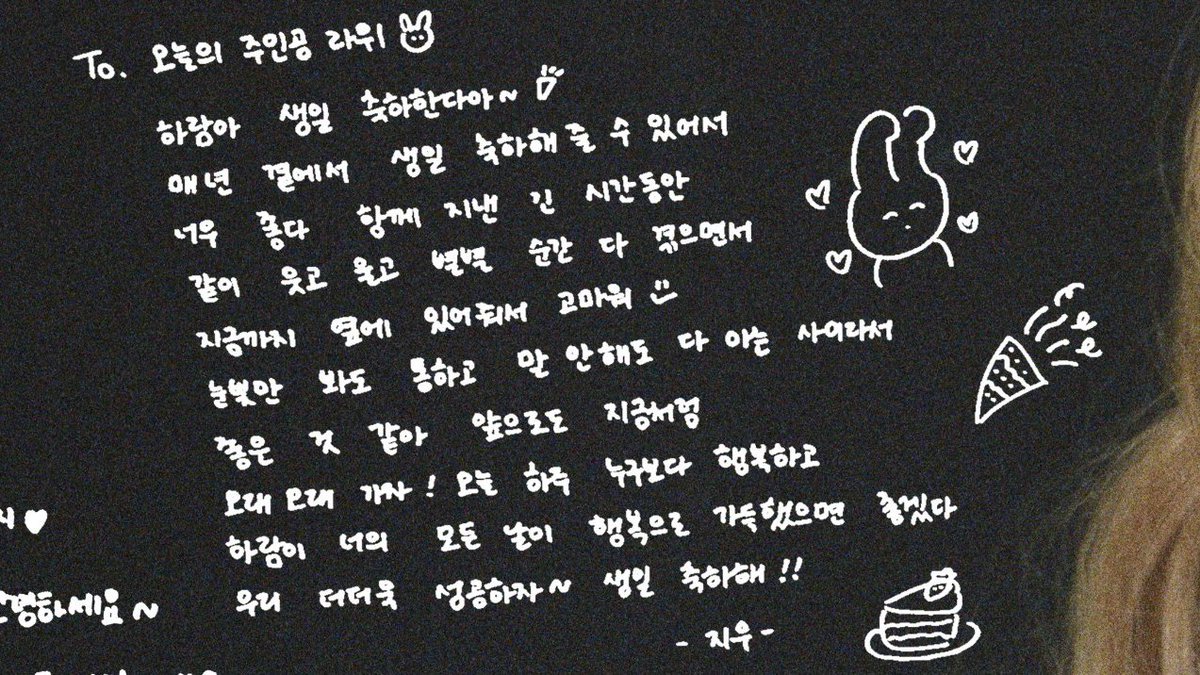 To. 오늘의 주인공 라위
하람아 생일 축하한다아~
매년 곁에서 생일 축하해 줄 수 있어서
너무 좋다 함께 지낸 긴 시간동안
같이 웃고 울고 별별 순간 다 겪으면서
지금까지 옆에 있어줘서 고마워
눈빛만 봐도 통하고 말 안해도 다 아는 사이라서
좋은 것 같아 앞으로도 지금처럼
오래오래 가자! 오늘 하루 누구보다 행복하고
하람이 너의 모든 날이 행복으로 가득했으면 좋겠다
우리 더더욱 성공하자~ 생일 축하해!!
- 지우 -